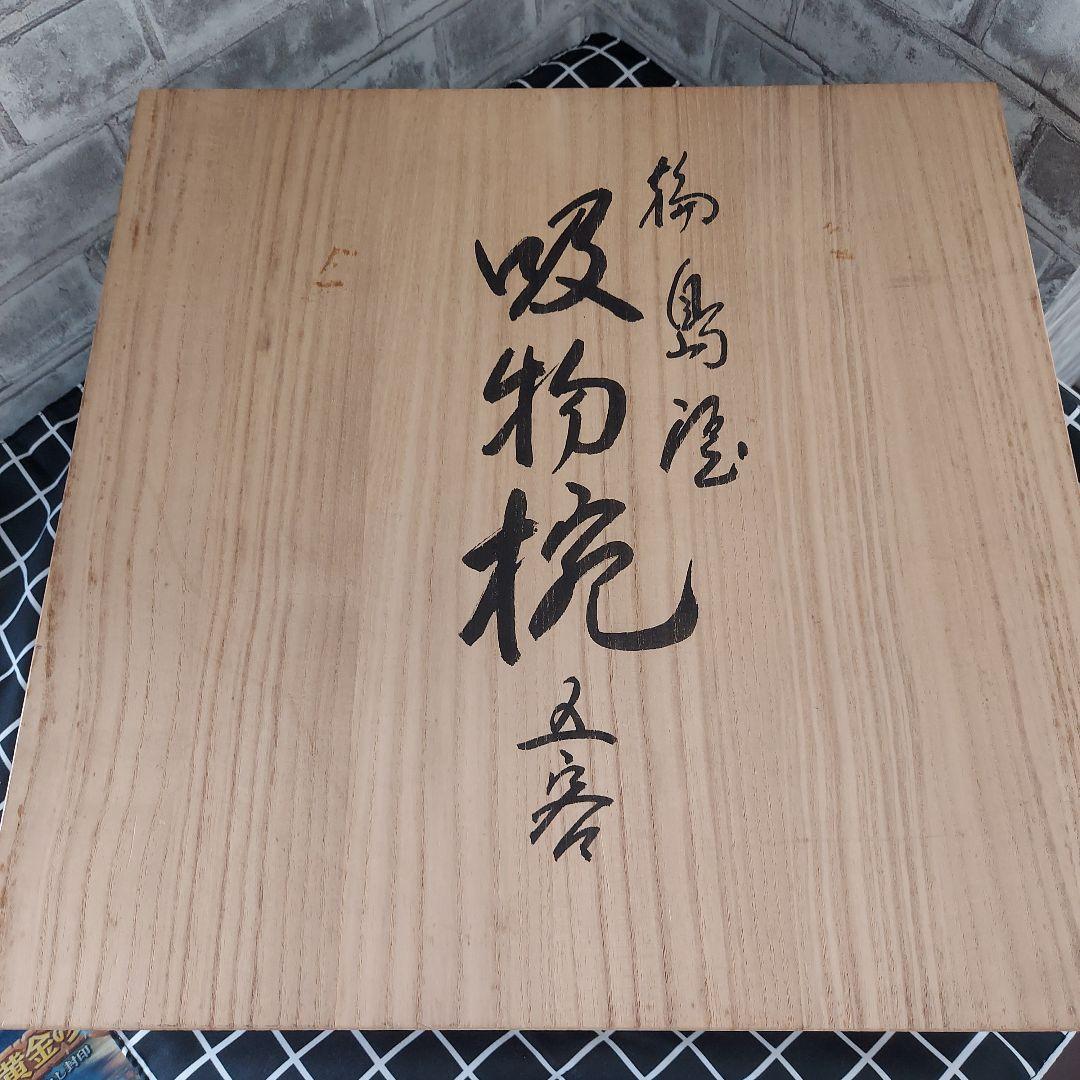 輪島塗
吸物椀 五客
黄金の
し封印